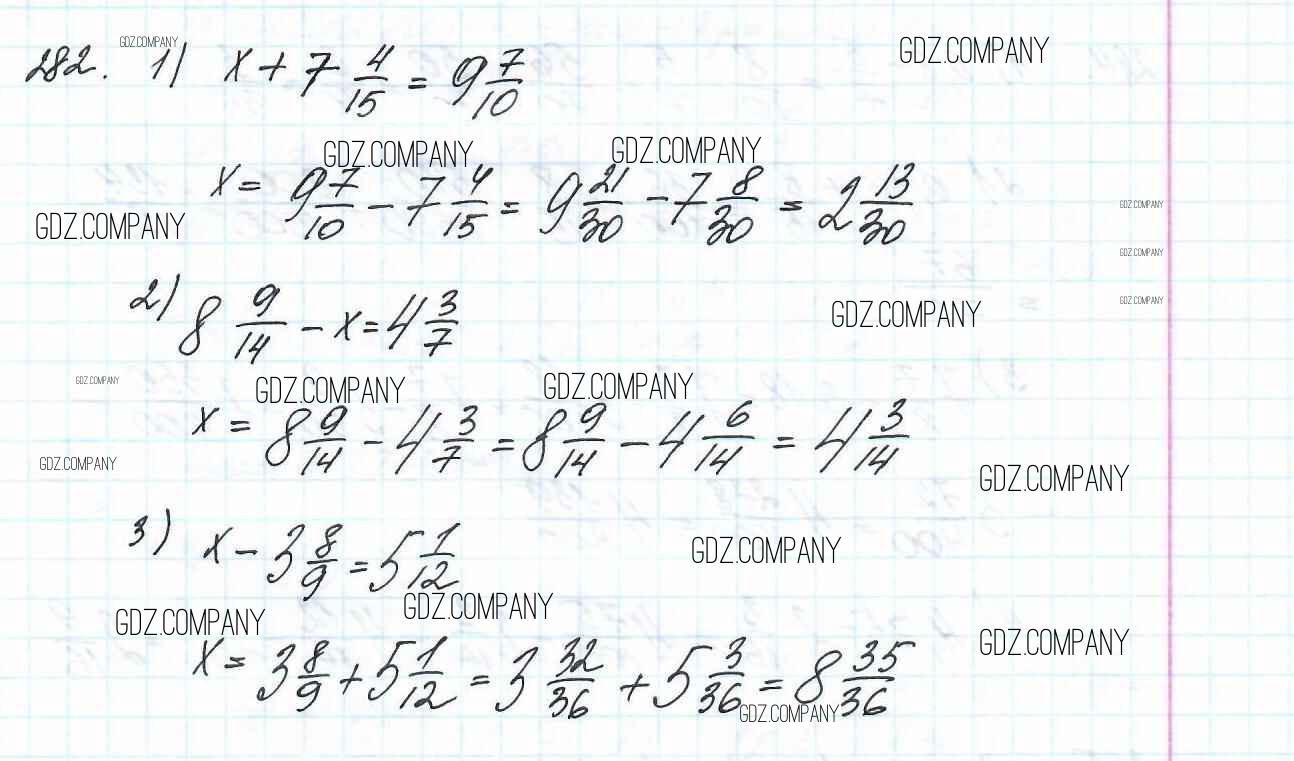 GDZ.COMPANY
282. 1) x + 7 4/15 = 9 7/10
GDZ.COMPANY
GDZ.COMPANY GDZ.COMPANY
x = 9 7/10 - 7 4/15 = 9 21/30 - 7 8/30 = 2 13/30
GDZ.COMPANY
GDZ.COMPANY
GDZ.COMPANY
2) 8 9/14 - x = 4 3/7
GDZ.COMPANY
GDZ.COMPANY
GDZ.COMPANY
GDZ.COMPANY GDZ.COMPANY
x = 8 9/14 - 4 3/7 = 8 9/14 - 4 6/14 = 4 3/14
GDZ.COMPANY
GDZ.COMPANY
3) x - 3 8/9 = 5 1/12
GDZ.COMPANY
GDZ.COMPANY
GDZ.COMPANY
GDZ.COMPANY
x = 3 8/9 + 5 1/12 = 3 32/36 + 5 3/36 = 8 35/36
GDZ.COMPANY